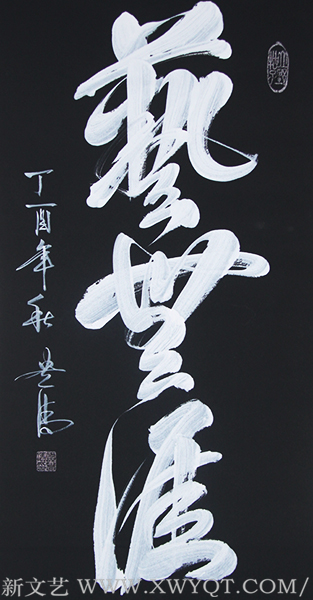 藝無涯
丁酉年秋
新文艺 WWW.XWYQT.COM/